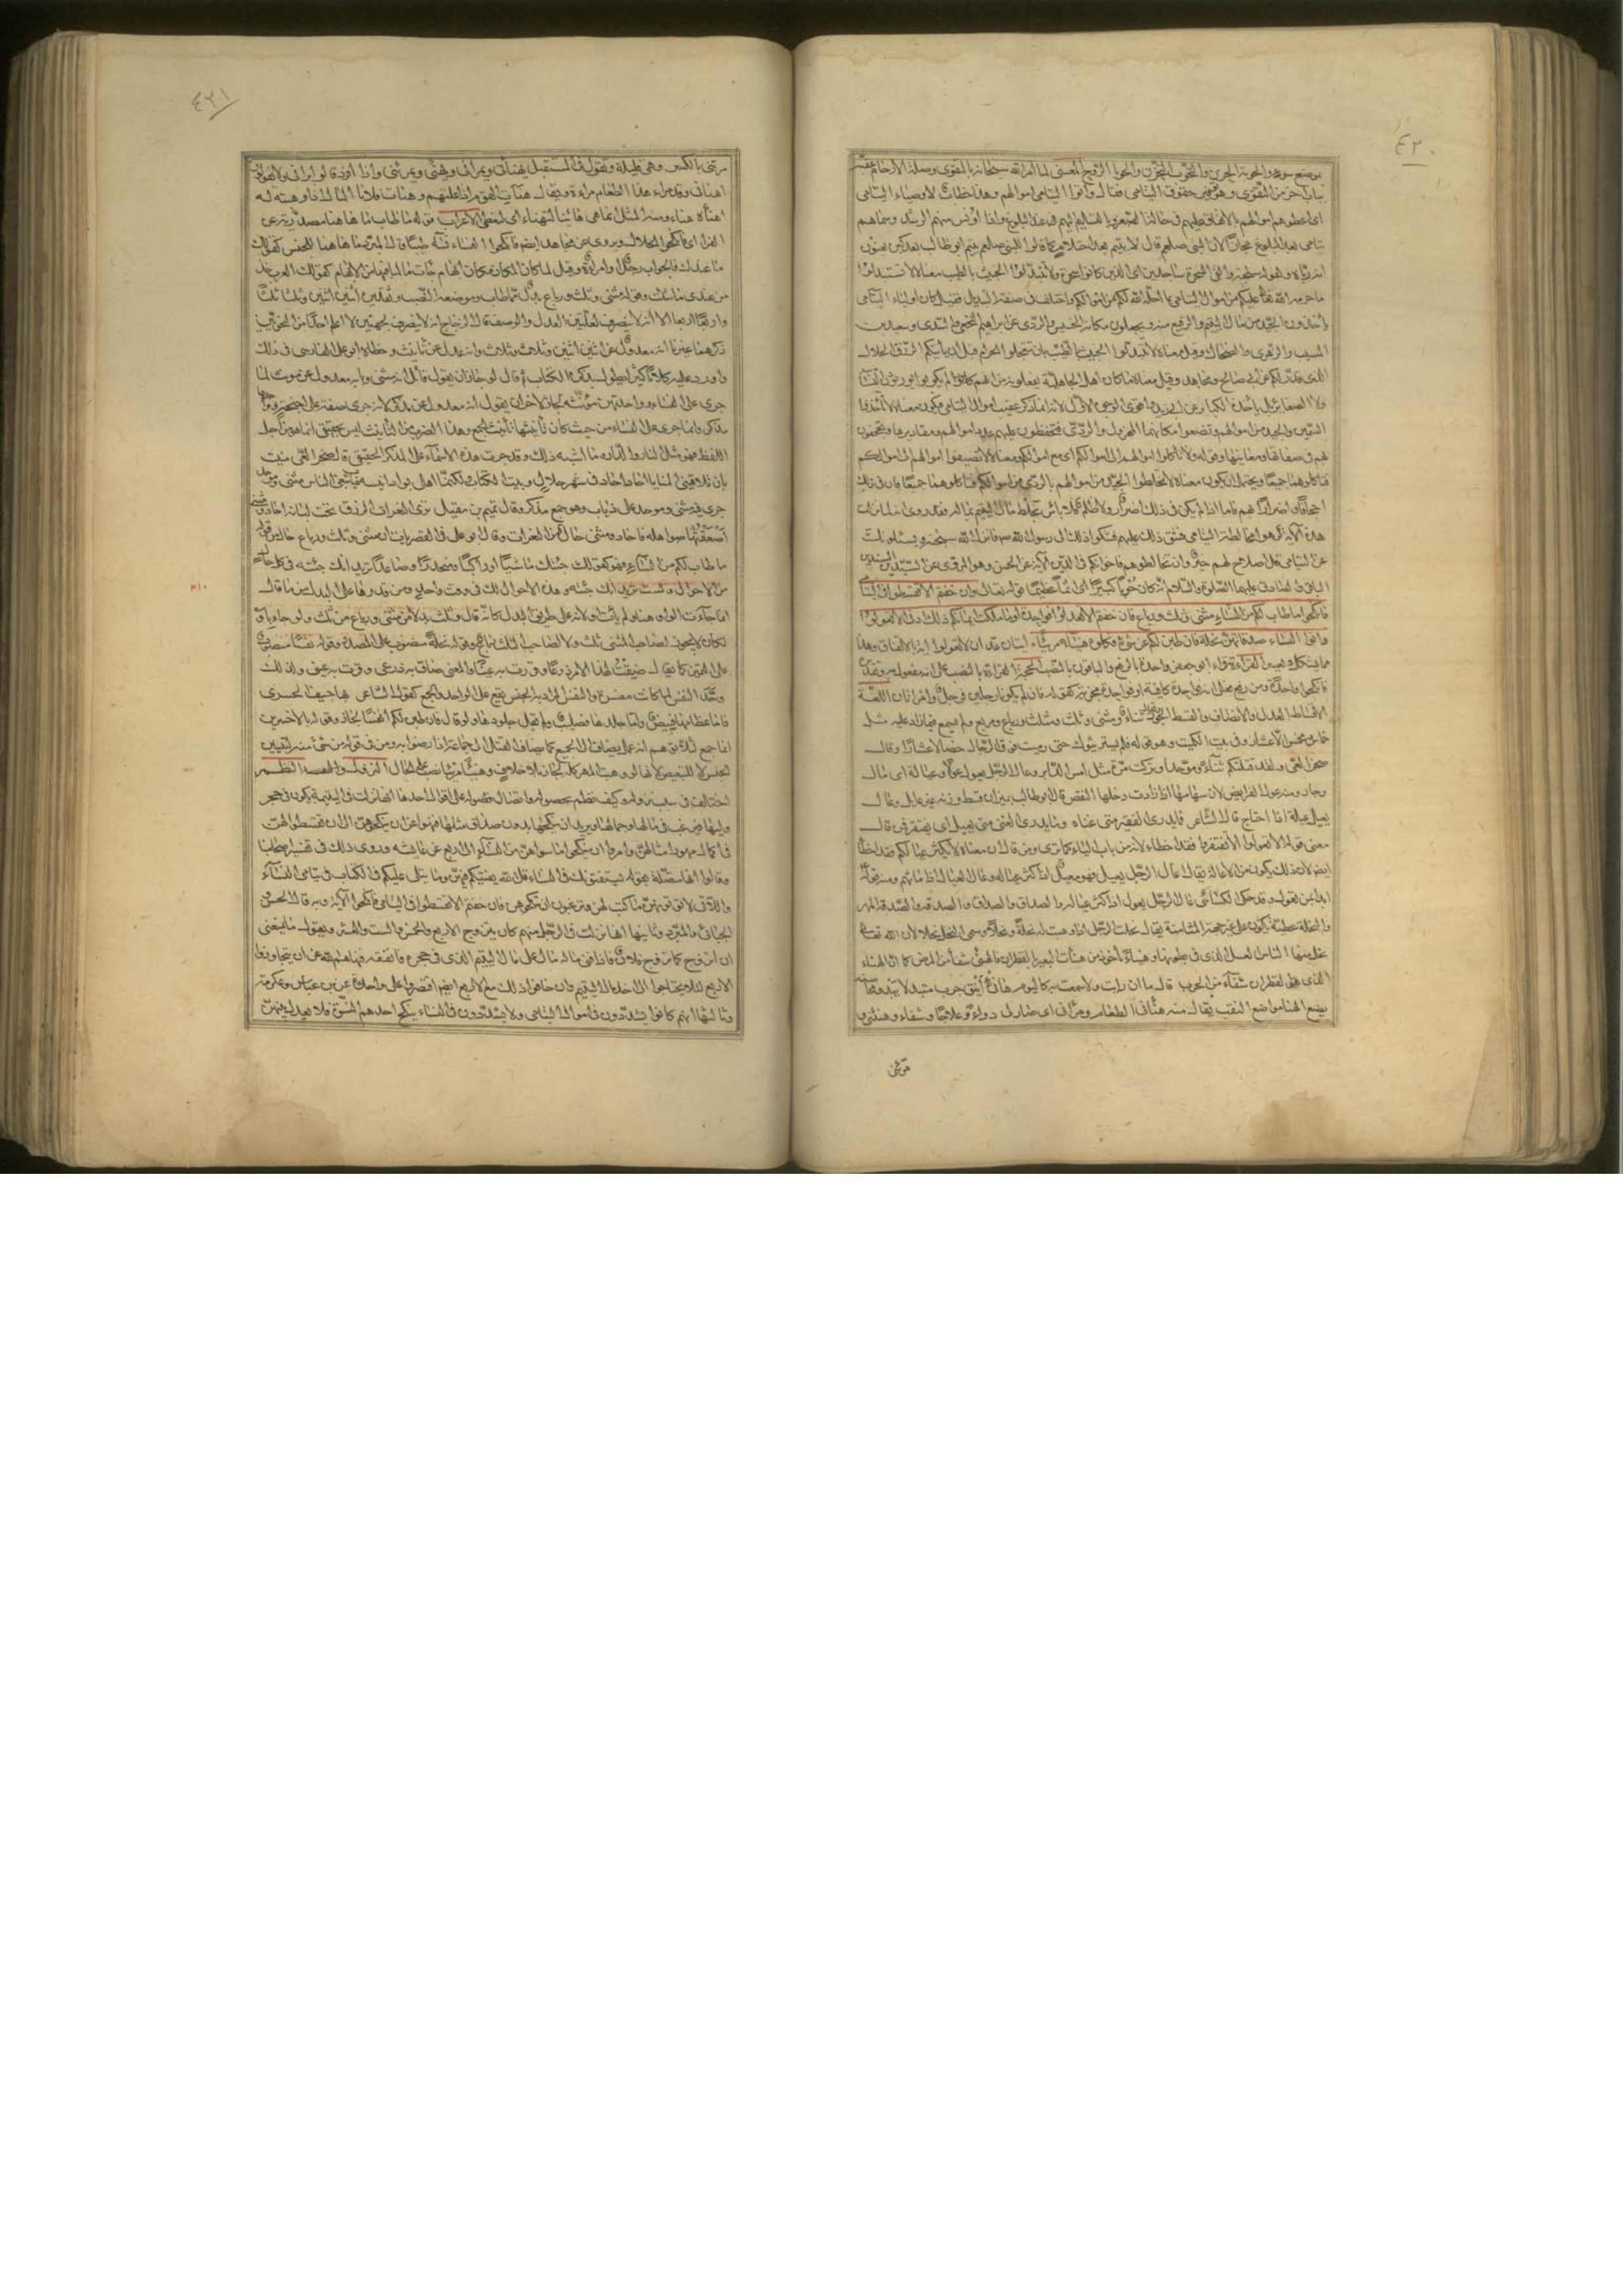 ٤٢٠
موضع سوء والحوبة الحزن والتحوب التحزن والحوباء الروح المعنى لما امر الله سبحانه بالتقوى وصلة الارحام عقبه
بباب آخر من التقوى وهو توفير حقوق اليتامى فقال وآتوا اليتامى اموالهم وهذا خطاب لاوصياء اليتامى
اى اعطوهم اموالهم بالانفاق عليهم فى حالة الصغر وبالتسليم اليهم عند البلوغ واذا اونس منهم الرشد وسماهم
يتامى بعد البلوغ مجازا لان النبى صلعم قال لا يتم بعد احتلام كما قالوا للنبى صلعم يتيم ابو طالب بعد كبره يعنون
انه رباه وكقوله سبحانه والقى السحرة ساجدين اى الذين كانوا سحرة ولا تتبدلوا الخبيث بالطيب معناه لا تستبدلوا
ما حرمه الله تعالى عليكم من اموال اليتامى بما احله الله لكم من اموالكم واختلف فى صفة التبديل فقيل كان اولياء اليتامى
ياخذون الجيد من مال اليتيم والرفيع منه ويجعلون مكانه الخسيس والردى عن ابراهيم النخعى والسدى وسعيد بن
المسيب والزهرى والضحاك وقيل معناه لا تتبدلوا الخبيث بالطيب بان تتعجلوا الحرام قبل ان ياتيكم الرزق الحلال
الذى قدر لكم عن ابى صالح ومجاهد وقيل معناه ما كان اهل الجاهلية يفعلونه من انهم كانوا لم يكونوا يورثون النساء
ولا الصغار بل ياخذه الكبار عن ابن زيد واقوى الوجوه الاول لانه انما ذكر عقيب اموال اليتامى فيكون معناه لا تاخذوا
السمين والجيد من اموالهم وتضعوا مكانهما المهزول والردى فتحفظون عليهم عدد اموالهم ومقاديرها وتجحفون
بهم فى صفاتها ومعانيها وقوله ولا تاكلوا اموالهم الى اموالكم اى مع اموالكم ومعناه لا تضيفوا اموالهم الى اموالكم
فتاكلوهما جميعا ويحتمل ان يكون معناه لا تخلطوا الجيد من اموالهم بالردى من اموالكم فتاكلوهما جميعا فان فى ذلك
اجحافا واضرارا بهم فاما اذا لم يكن فى ذلك اضرار ولا ظلم فلا باس بخلط مال اليتيم بماله فقد روى انه لما نزلت
هذه الآية كرهوا مخالطة اليتامى فشق ذلك عليهم فشكوا ذلك الى رسول الله ص فانزل الله سبحانه ويسئلونك
عن اليتامى قل اصلاح لهم خير وان تخالطوهم فاخوانكم فى الدين الآية عن الحسن وهو المروى عن السيدين
الباقر والصادق عليهما الصلوة والسلام انه كان حوبا كبيرا اى اثما عظيما قوله تعالى وان خفتم الا تقسطوا فى اليتامى
فانكحوا ما طاب لكم من النساء مثنى وثلث ورباع فان خفتم الا تعدلوا فواحدة او ما ملكت ايمانكم ذلك ادنى الا تعولوا
وآتوا النساء صدقاتهن نحلة فان طبن لكم عن شىء منه نفسا فكلوه هنيئا مريئا آيتان
القراءة قراء ابو جعفر واحدة بالرفع والباقون بالنصب الحجة القراءة بالنصب على انه مفعول به وتقديره
فانكحوا واحدة ومن رفع فعلى انه فواحدة كافية او فواحدة مجزية كقوله فان لم يكونا رجلين فرجل وامراتان اللغة
الاقساط العدل والانصاف والقسط الجور وثناء ومثنى وثلث ومثلث ورباع ومربع ولم يسمع فيما زاد عليه مثل
خماس ومخمس الا عشار وفى بيت الكميت وهو قوله فلم يستريثوك حتى رميت فوق الرجال خصالا عشارا وقال
صخر الغى ولقد قتلتكم ثناء وموحدا وتركت مرة مثل امس الدابر وعال الرجل يعول عولا وعيالة اى مال
وجار ومنه عول الفرايض لان سهامها اذا زادت دخلها النقص قال ابو طالب بميزان قسط وزنه غير عايل وعال
يعيل عيلة اذا احتاج قال الشاعر فما يدرى الفقير متى غناه وما يدرى الغنى متى يعيل اى يفتقر فمن قال
معنى قوله الا تعولوا الا تفتقروا فقد اخطا لانه من باب الياء كما ترى ومن قال ان معناه لا يكثر عيالكم فقد اخطا
ايضا لان ذلك يكون من الاعالة يقال اعال الرجل يعيل فهو معيل اذا كثر عياله وعال العيال اذا مانهم ومنه قوله
ابدا بمن تعول وقد حكى الكسائى عال الرجل يعول اذا كثر عياله والصداق والصداق والصدقة والصدقة المهر
والنحلة عطية تكون على غير جهة المثامنة يقال نحلت الرجل اذا وهبت له نحلة ونحلا وسمى النحل نحلا لان الله تعالى
نحل منها الناس العسل الذى فى بطونها وهنيئا ماخوذ من هنات البعير بالقطران فالهنىء شفاء من المرض كما ان الهناء
الذى هو القطران شفاء من الجرب قال ما ان رايت ولا سمعت به كاليوم هانئ اينق جرب متبذلا تبدو محاسنه
يضع الهناء مواضع النقب يقال منه هنأنى الطعام ومرأنى اى صار لى دواء وعلاجا وشفاء وهنئنى و
مرئنى
٤٢١
مرئنى بالكسر وهى قليلة وتقول فى المستقبل يهنأنى ويمرأنى ويهنئنى ويمرئنى واذا افردوا قالوا امرانى ولا يقولون
اهنانى وقد مراء هذا الطعام مراءة ويقال هنات القوم اذا علتهم وهنات فلانا المال اذا وهبته له
اهنأه هناء ومنه المثل انما سميت هانئا لتهناء اى لتعطى الاعراب قوله ما طاب ما هاهنا مصدرية عن
الفراء اى فانكحوا الحلال وروى عن مجاهد ايضا فانكحوا النساء نكاحا طيبا وقال المبرد ما هاهنا للجنس كقولك
ما عندك فالجواب رجل او امراة وقيل لما كان المكان مكان ابهام جاءت ما لما فيها من الابهام كقول العرب خذ
من عندى ما شئت وقوله مثنى وثلث ورباع بدل مما طاب وموضعه النصب وتقديره اثنين اثنين وثلثا ثلثا
واربعا اربعا الا انه لا ينصرف لعلتين العدل والوصف قال الزجاج انه لا ينصرف لجهتين لا اعلم احدا من النحويين
ذكرهما غيرنا انه معدول عن اثنين اثنين وثلاث وثلاث وانه عدل عن تانيث وخطاه ابو على الفارسى فى ذلك
واورد عليه كلاما كثيرا يطول بذكره الكتاب ثم قال لو جاز ان يقول قائل ان مثنى وبابه معدول عن مؤنث لما
جرى على النساء وواحدتهن مؤنثة لجاز لآخر ان يقول انه معدول عن مذكر لانه جرى صفة على اجنحة وواحدها
مذكر وانما جرى على النساء من حيث كان تانيثها تانيث الجمع وهذا الضرب من التانيث ليس بحقيقى انما هو من اجل
اللفظ فهو مثل النار والدار وما اشبه ذلك وقد جرت هذه الاسماء على المذكر الحقيقى قال صخر الغى منيت
بان تلاقينى المنايا احاد احاد فى شهر حلال وبيت الكتاب لكنما اهلى بواد انيسه ذئاب تبغى الناس مثنى وموحد
جرى فيه مثنى وموحد على ذئاب وهو جمع مذكر وقال تميم بن مقبل ترى النعرات الزرق تحت لبانه احاد ومثنى
اصعقتها صواهله فاحاد ومثنى حال من النعرات وقال ابو على فى القصريات ان مثنى وثلث ورباع حال من قوله
ما طاب لكم من النساء فهو كقولك جئتك ماشيا وراكبا ومنحدرا وصاعدا تريد انك جئته فى كل حال
من الاحوال ولست تريد انك جئته وهذه الاحوال لك فى وقت واحد ومن قدرها على البدل من ما قال
انما جاءت الواو هنا ولم يات او لانه على طريق البدل كانه قال وثلث بدلا من مثنى ورباع من ثلث ولو جاء باو
لكان لا يجوز لصاحب المثنى ثلث ولا لصاحب الثلث رباع وقوله نحلة منصوب على المصدر وقوله نفسا منصوب
على التمييز كما يقال ضقت بهذا الامر ذرعا وقررت به عينا والمعنى ضاق به ذرعى وقرت به عينى ولذلك
وحد النفس لما كانت مفسرة والنفس المراد به الجنس يقع على الواحد والجمع كقول الشاعر بها جيف الحسرى
فاما عظامها فبيض واما جلدها فصليب ولم يقل جلودها ولو قال فان طبن لكم انفسا لجاز وقوله بالاخسرين
اعمالا انما جمع لئلا يوهم انه عمل يضاف الى الجميع كما يضاف القتل الى الجماعة اذا رضوا به ومن فى قوله من شىء منه لتبيين
الجنس لا للتبعيض لانها لو وهبت المهر كله لجاز بلا خلاف وهنيئا مريئا نصب على الحال النزول والنظم
اختلف فى سبب نزوله وكيف نظم محصوله واتصال فصوله على اقوال احدها انها نزلت فى اليتيمة تكون فى حجر
وليها فيرغب فى مالها وجمالها ويريد ان ينكحها بدون صداق مثلها فنهوا عن ان ينكحوهن الا ان يقسطوا لهن
فى اكمال مهور امثالهن وامروا ان ينكحوا ما سواهن من النساء الى اربع عن عايشة وروى ذلك فى تفسير اصحابنا
وقالوا انها متصلة بقوله يستفتونك فى النساء قل الله يفتيكم فيهن وما يتلى عليكم فى الكتاب فى يتامى النساء
واللاتى لا تؤتونهن ما كتب لهن وترغبون ان تنكحوهن فان خفتم الا تقسطوا فى اليتامى فانكحوا الآية وبه قال الحسن و
الجبائى والمبرد وثانيها انها نزلت فى الرجل منهم كان يتزوج الاربع والخمس والست والعشر ويقول ما يمنعنى
ان اتزوج كما تزوج فلان فاذا فنى ماله مال على مال اليتيم الذى فى حجره فانفقه فنهاهم الله عن ان يتجاوزوا
الاربع لئلا يحتاجوا الى اخذ مال اليتيم وان خافوا ذلك مع الاربع ايضا اقتصروا على واحدة عن ابن عباس وعكرمة
وثالثها انهم كانوا يشددون فى اموال اليتامى ولا يشددون فى النساء ينكح احدهم النسوة فلا يعدل بينهن
٣١٠